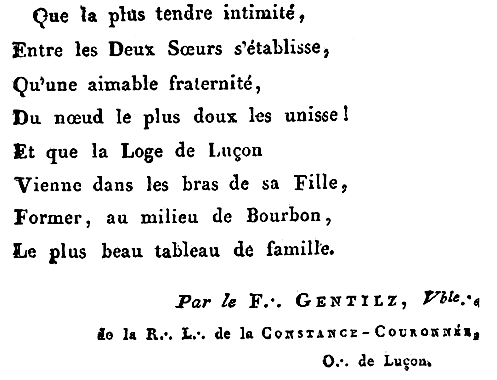 Que la plus tendre intimité,
Entre les Deux Sœurs s'établisse,
Qu'une aimable fraternité,
Du nœud le plus doux les unisse!
Et que la Loge de Luçon
Vienne dans les bras de sa Fille,
Former, au milieu de Bourbon,
Le plus beau tableau de famille.
Par le F∴ GENTILZ, Vble∴
de la R∴ L∴ de la CONSTANCE-COURONNÉE,
O∴ de Luçon.